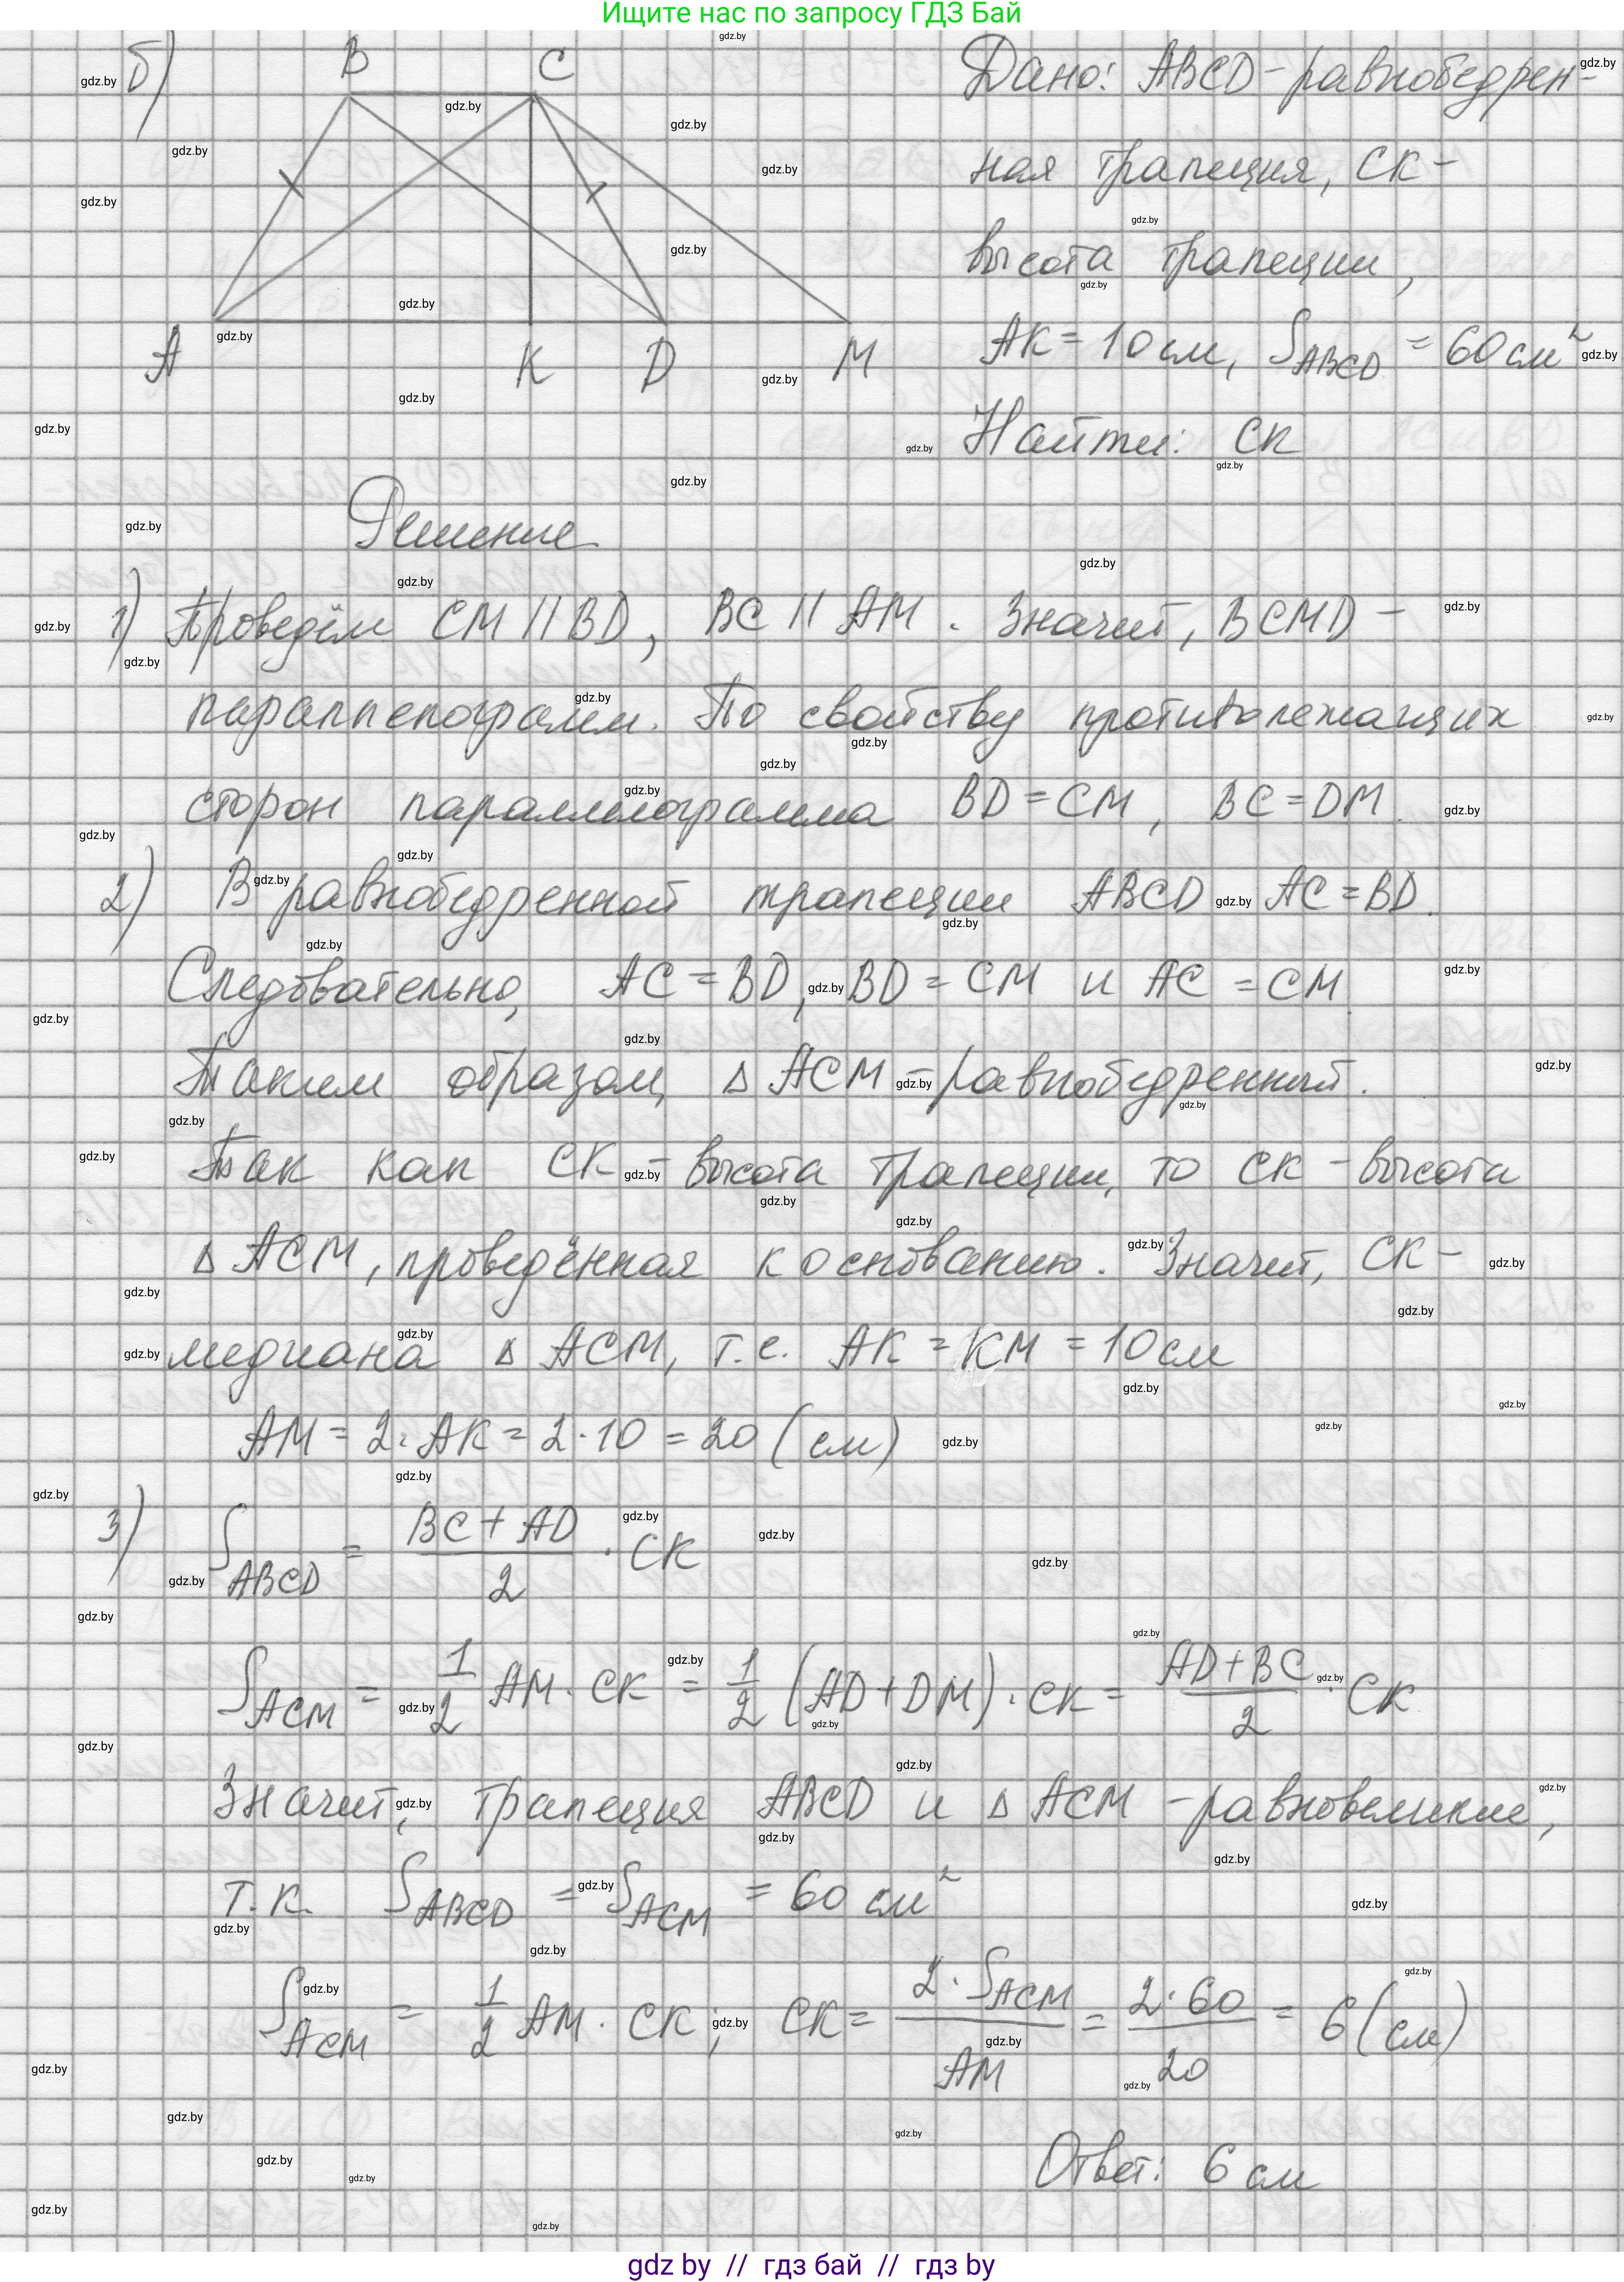 Ищите нас по запросу ГДЗ Бай
б)
B C
A K D M
Дано: ABCD - равнобедрен-
ная трапеция, CK -
высота трапеции,
AK = 10 см, S_ABCD = 60 см²
Найти: CK
Решение
1) Проведём CM || BD, BC || AM. Значит, BCMD -
параллелограмм. По свойству противолежащих
сторон параллелограмма BD = CM, BC = DM.
2) В равнобедренной трапеции ABCD AC = BD.
Следовательно, AC = BD, BD = CM и AC = CM
Таким образом, Δ ACM - равнобедренный.
Так как CK - высота трапеции, то CK - высота
Δ ACM, проведённая к основанию. Значит, CK -
медиана Δ ACM, т.е. AK = KM = 10 см
AM = 2 · AK = 2 · 10 = 20 (см)
3) S_ABCD = (BC + AD)/2 · CK
S_ACM = 1/2 AM · CK = 1/2 (AD + DM) · CK = (AD + BC)/2 · CK
Значит, трапеция ABCD и Δ ACM - равновеликие,
т.к. S_ABCD = S_ACM = 60 см²
S_ACM = 1/2 AM · CK; CK = (2 · S_ACM)/AM = (2 · 60)/20 = 6 (см)
Ответ: 6 см
gdz by // гдз бай // гдз by